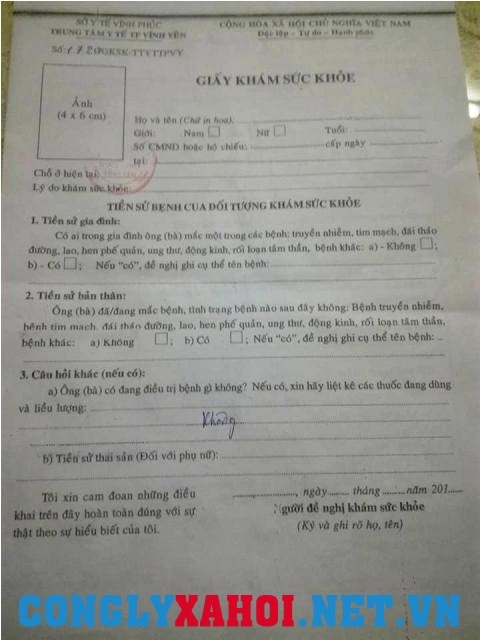 SỞ Y TẾ VĨNH PHÚC
TRUNG TÂM Y TẾ TP VĨNH YÊN
CỘNG HÒA XÃ HỘI CHỦ NGHĨA VIỆT NAM
Độc lập - Tự do - Hạnh phúc
GIẤY KHÁM SỨC KHỎE
Ảnh
(4 x 6 cm)
Họ và tên (Chữ in hoa):
Giới: Nam Nữ Tuổi:
Số CMND hoặc hộ chiếu: cấp ngày
tại:
Chỗ ở hiện tại:
Lý do khám sức khỏe:
TIỀN SỬ BỆNH CỦA ĐỐI TƯỢNG KHÁM SỨC KHỎE
1. Tiền sử gia đình:
Có ai trong gia đình ông (bà) mắc một trong các bệnh: truyền nhiễm, tim mạch, đái tháo
đường, lao, hen phế quản, ung thư, động kinh, rối loạn tâm thần, bệnh khác: a) - Không ;
b) - Có ; Nếu “có”, đề nghị ghi cụ thể tên bệnh:
2. Tiền sử bản thân:
Ông (bà) đã/đang mắc bệnh, tình trạng bệnh nào sau đây không: Bệnh truyền nhiễm,
bệnh tim mạch, đái tháo đường, lao, hen phế quản, ung thư, động kinh, rối loạn tâm thần,
bệnh khác: a) Không ; b) Có ; Nếu “có”, đề nghị ghi cụ thể tên bệnh:
3. Câu hỏi khác (nếu có):
a) Ông (bà) có đang điều trị bệnh gì không? Nếu có, xin hãy liệt kê các thuốc đang dùng
và liều lượng:
Không
b) Tiền sử thai sản (Đối với phụ nữ):
Tôi xin cam đoan những điều
khai trên đây hoàn toàn đúng với sự
thật theo sự hiểu biết của tôi.
, ngày tháng năm 201
Người đề nghị khám sức khỏe
(Ký và ghi rõ họ, tên)
CONGLYXAHOI.NET.VN